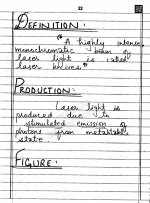 22
DEFINITION:
"A highly intense,
monochromatic beam of
laser light is called
laser knives"
PRODUCTION:
Laser light is
produced due to
stimulated emission of
photons from metastable
state.
FIGURE: